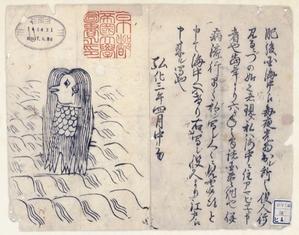 肥後国海中え毎夜光物出ル所之役人行
見るニづの如く者現ス私ハ海中ニ住アマビヱト申
者也当年より六ヶ年之間諸国豊作也併
病流行早々私シ写シ人々ニ見セ候得と
申て海中へ入けり右ハ写シ役人より江戸え
申来ル写也
弘化三年四月中旬
京都
帝國大學
圖書之印